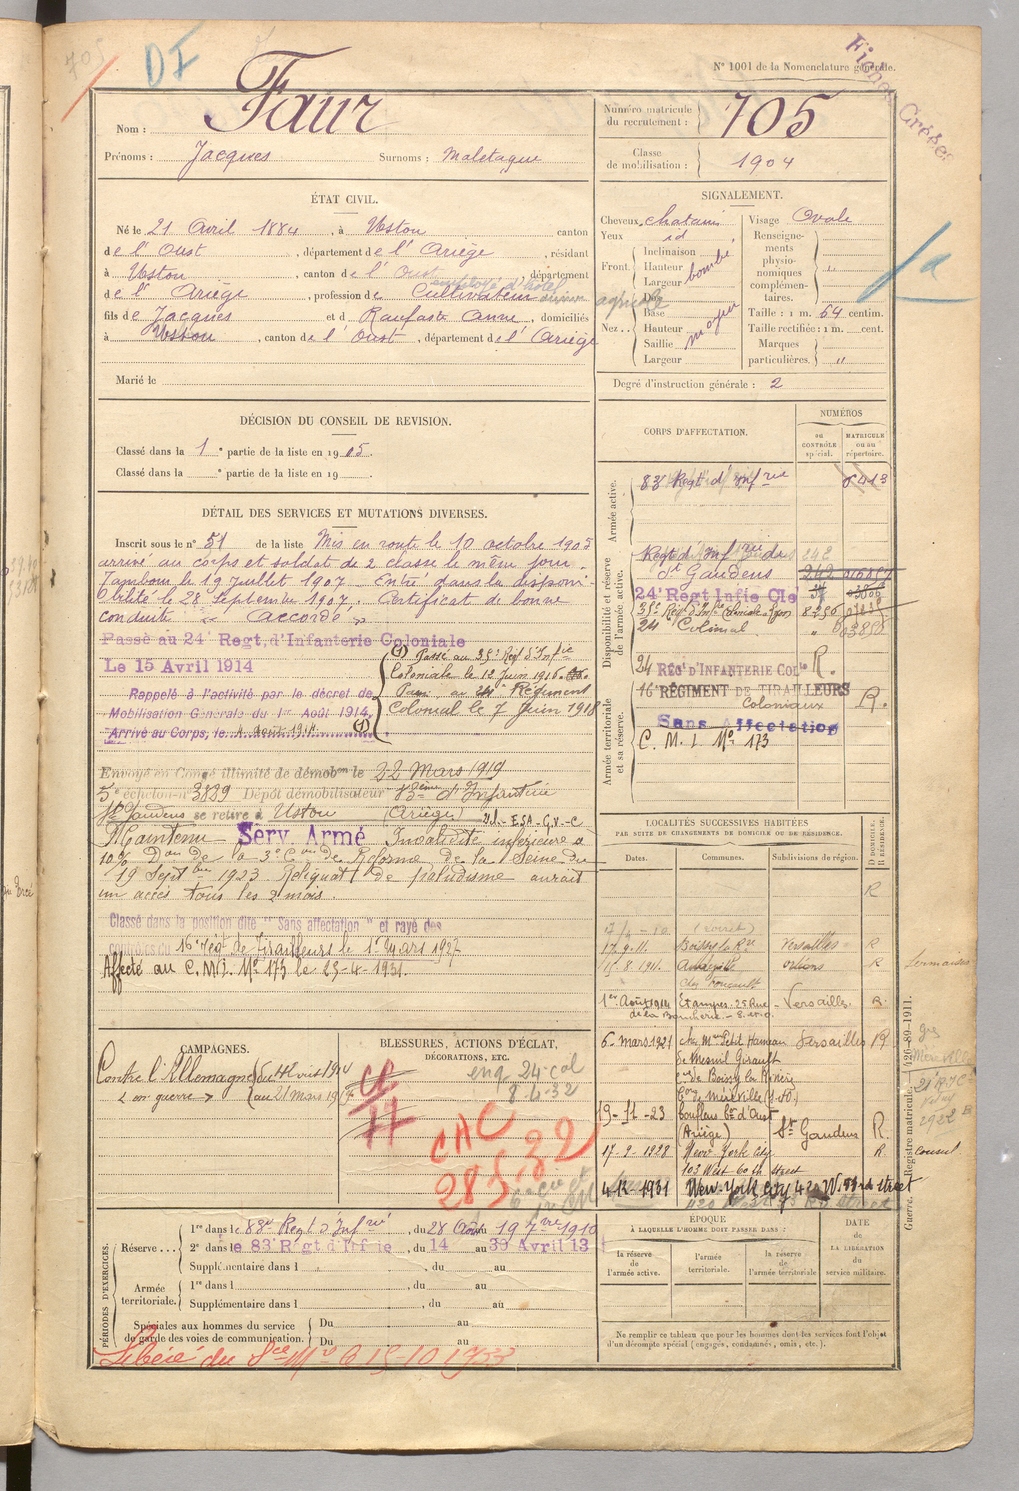 705
DI
N° 1001 de la Nomenclature générale.
Fiches Créées
Nom : Faur
Prénoms : Jacques Surnoms : Maletague
Numéro matricule du recrutement : 705
Classe de mobilisation : 1904
ÉTAT CIVIL.
Né le 21 Avril 1884, à Ustou canton
de l'Oust, département de l'Ariège, résidant
à Ustou, canton de l'Oust, département
employé d'hôtel
de l'Ariège, profession de Cultivateur agricole
fils de Jacques et d Raufaste Anne, domiciliés
à Ustou, canton de l'Oust, département de l'Ariège
Marié le
SIGNALEMENT.
Cheveux chatains
Yeux id
Front. Inclinaison
Hauteur bombé
Largeur
Nez Dos
Base
Hauteur moyen
Saillie
Largeur
Visage Ovale
Renseignements physionomiques complémentaires. "
Taille : 1 m. 64 centim.
Taille rectifiée : 1 m. cent.
Marques particulières. "
Degré d'instruction générale : 2
DÉCISION DU CONSEIL DE REVISION.
Classé dans la 1e partie de la liste en 1905.
Classé dans la e partie de la liste en 19
CORPS D'AFFECTATION.
NUMÉROS
DU CONTRÔLE spécial.
MATRICULE ou au répertoire.
Armée active.
83e Régt d'Infrie 6413
Disponibilité et réserve de l'armée active.
Régt d'Infrie de 242
St Gaudens 242
24e Régt Infie Cle
35e Rég d'Infie Coloniale Lyon 8256
24 Colonial "
24 RÉGt D'INFANTERIE COLle R.
16e RÉGIMENT DE TIRAILLEURS Coloniaux R.
Armée territoriale et sa réserve.
Sans Affectation
C. M. I. N° 173
DÉTAIL DES SERVICES ET MUTATIONS DIVERSES.
Inscrit sous le n° 51 de la liste Mis en route le 10 octobre 1905
arrivé au corps et soldat de 2 classe le même jour.
Tambour le 19 Juillet 1907. Entré dans la disponi-
bilité le 28 Septembre 1907. Certificat de bonne
conduite "accordé"
Passé au 24e Regt, d'Infanterie Coloniale
Le 15 Avril 1914
Rappelé à l'activité par le décret de
Mobilisation Générale du 1er Août 1914.
Arrivé au Corps, le 4 Août 1914.
(1)
(1) Passé au 35e Rég d'Infie
Coloniale le 12 Juin 1916.
Passé au 24e Régiment
Colonial le 7 Juin 1918
Envoyé en Congé illimité de démobon le 22 Mars 1919
5e échelon n° 3829 Dépôt démobilisateur 83ème d'Infanterie
St Gaudens se retire à Ustou (Ariège)
Maintenu Serv Armé Invalidité inférieure à
10% Don de la 3e Con de Réforme de la Seine du
19 Septbre 1923 Reliquat de paludisme aurait
un accès tous les 2 mois.
Classé dans la position dite "Sans affectation" et rayé des
contrôles du 16e Régt de Tirailleurs le 1er Mars 1927
Affecté au C.M.I. N° 173 le 23-4-1931.
LOCALITÉS SUCCESSIVES HABITÉES
PAR SUITE DE CHANGEMENTS DE DOMICILE OU DE RÉSIDENCE.
Dates. Communes. Subdivisions de région. D DOMICILE. R RÉSIDENCE.
R
(Loiret)
17.9.11. Boissy la Rre Versailles R
15.8.1911. Orléans R
1er Août 1914 Etampes. 25 Rue de la Boucherie - S. et O. Versailles. R.
6-mars 1921 chez Mr Petit Hameau Versailles R
de Mesnil Girault
cne de Boissy la Rivière
Con de Méréville (S-O).
19-11-23 Couflens Con d'Oust (Ariège) St Gaudens R.
17-2-1928 New York City R. Consul
103 West 60 th Street
4-12-1931 New-York City 420 W. 53rd Street
CAMPAGNES.
Contre l'Allemagne du 4 Août 1914
en guerre au 21 Mars 1919
BLESSURES, ACTIONS D'ÉCLAT, DÉCORATIONS, ETC.
enq 24 col
8-4-32
CAC
28 5.32
PÉRIODES D'EXERCICES.
Réserve... 1re dans le 83e Régt d'Infie, du 28 Août au 19 7bre 1910
2e dans le 83e Régt d'Infie, du 14 au 30 Avril 13
Supplémentaire dans l, du au
Armée territoriale. 1re dans l, du au
Supplémentaire dans l, du au
Spéciales aux hommes du service de garde des voies de communication. Du au
Du au
Libéré du Sce Mre le 15-10-1933
ÉPOQUE À LAQUELLE L'HOMME DOIT PASSER DANS :
la réserve de l'armée active.
l'armée territoriale.
la réserve de l'armée territoriale
DATE DE LA LIBÉRATION du service militaire.
Ne remplir ce tableau que pour les hommes dont les services font l'objet
d'un décompte spécial (engagés, condamnés, omis, etc.).
Guerre. — Registre matricule. 426-89-1911.